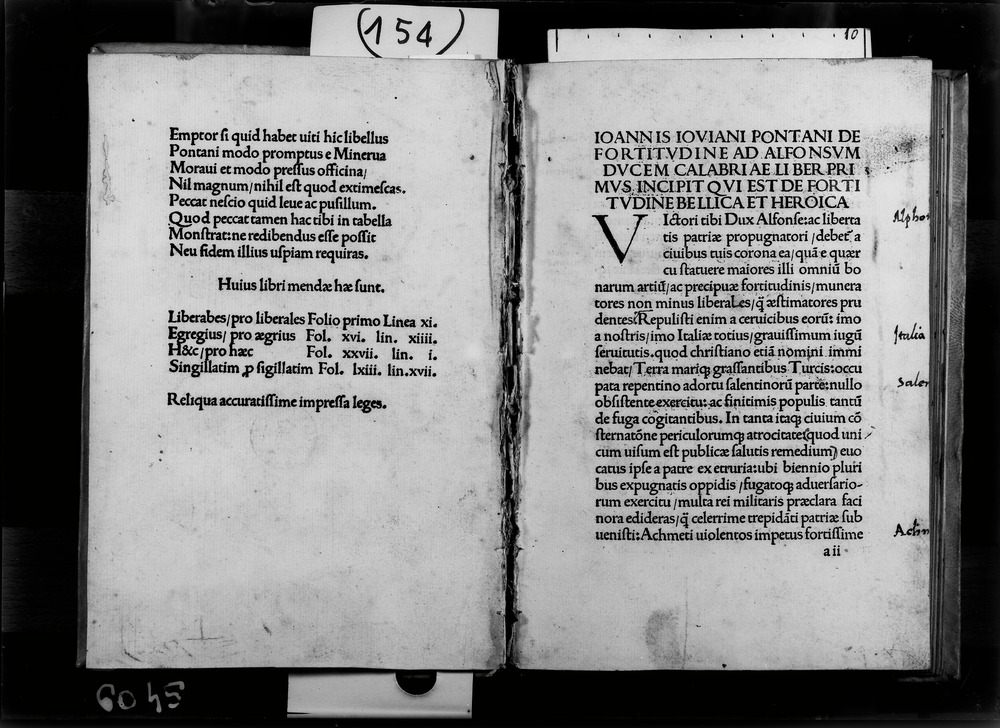 (154)
10
Emptor si quid habet uiti hic libellus
Pontani modo promptus e Minerua
Moraui et modo pressus officina/
Nil magnum/nihil est quod extimescas.
Peccat nescio quid leue ac pusillum.
Quod peccat tamen hac tibi in tabella
Monstrat:ne redibendus esse possit
Neu fidem illius uspiam requiras.
Huius libri mendæ hæ sunt.
Liberabes/pro liberales Folio primo Linea xi.
Egregius/ pro ægrius Fol. xvi. lin. xiiii.
H&c/pro hæc Fol. xxvii. lin. i.
Singillatim ꝓ sigillatim Fol. lxiii. lin.xvii.
Reliqua accuratissime impressa leges.
IOANNIS IOVIANI PONTANI DE
FORTITVDINE AD ALFONSVM
DVCEM CALABRIAE LIBER PRI
MVS INCIPIT QVI EST DE FORTI
TVDINE BELLICA ET HEROICA
VIctori tibi Dux Alfonse:ac liberta
tis patriæ propugnatori/debet᷑ a
ciuibus tuis corona ea/quā e quær
cu statuere maiores illi omniū bo
narum artiū/ac precipuæ fortitudinis/munera
tores non minus liberales/q̄ æstimatores pru
dentes.Repulisti enim a ceruicibus eorū: imo
a nostris/imo Italiæ totius/grauissimum iugū
seruitutis.quod christiano etiā nomini immi
nebat/Terra mariqꝫ grassantibus Turcis:occu
pata repentino adortu salentinorū parte:nullo
obsistente exercitu:ac finitimis populis tantū
de fuga cogitantibus. In tanta itaqꝫ ciuium cō
sternatōne periculorumqꝫ atrocitate(quod uni
cum uisum est publicæ salutis remedium) euo
catus ipse a patre ex etruria:ubi biennio pluri
bus expugnatis oppidis /fugatoqꝫ aduersario-
rum exercitu /multa rei militaris præclara faci
nora edideras/q̄ celerrime trepidāti patriæ sub
uenisti:Achmeti uiolentos impetus fortissime
a ii
Alphon
Italia
Salen
Achm
6045